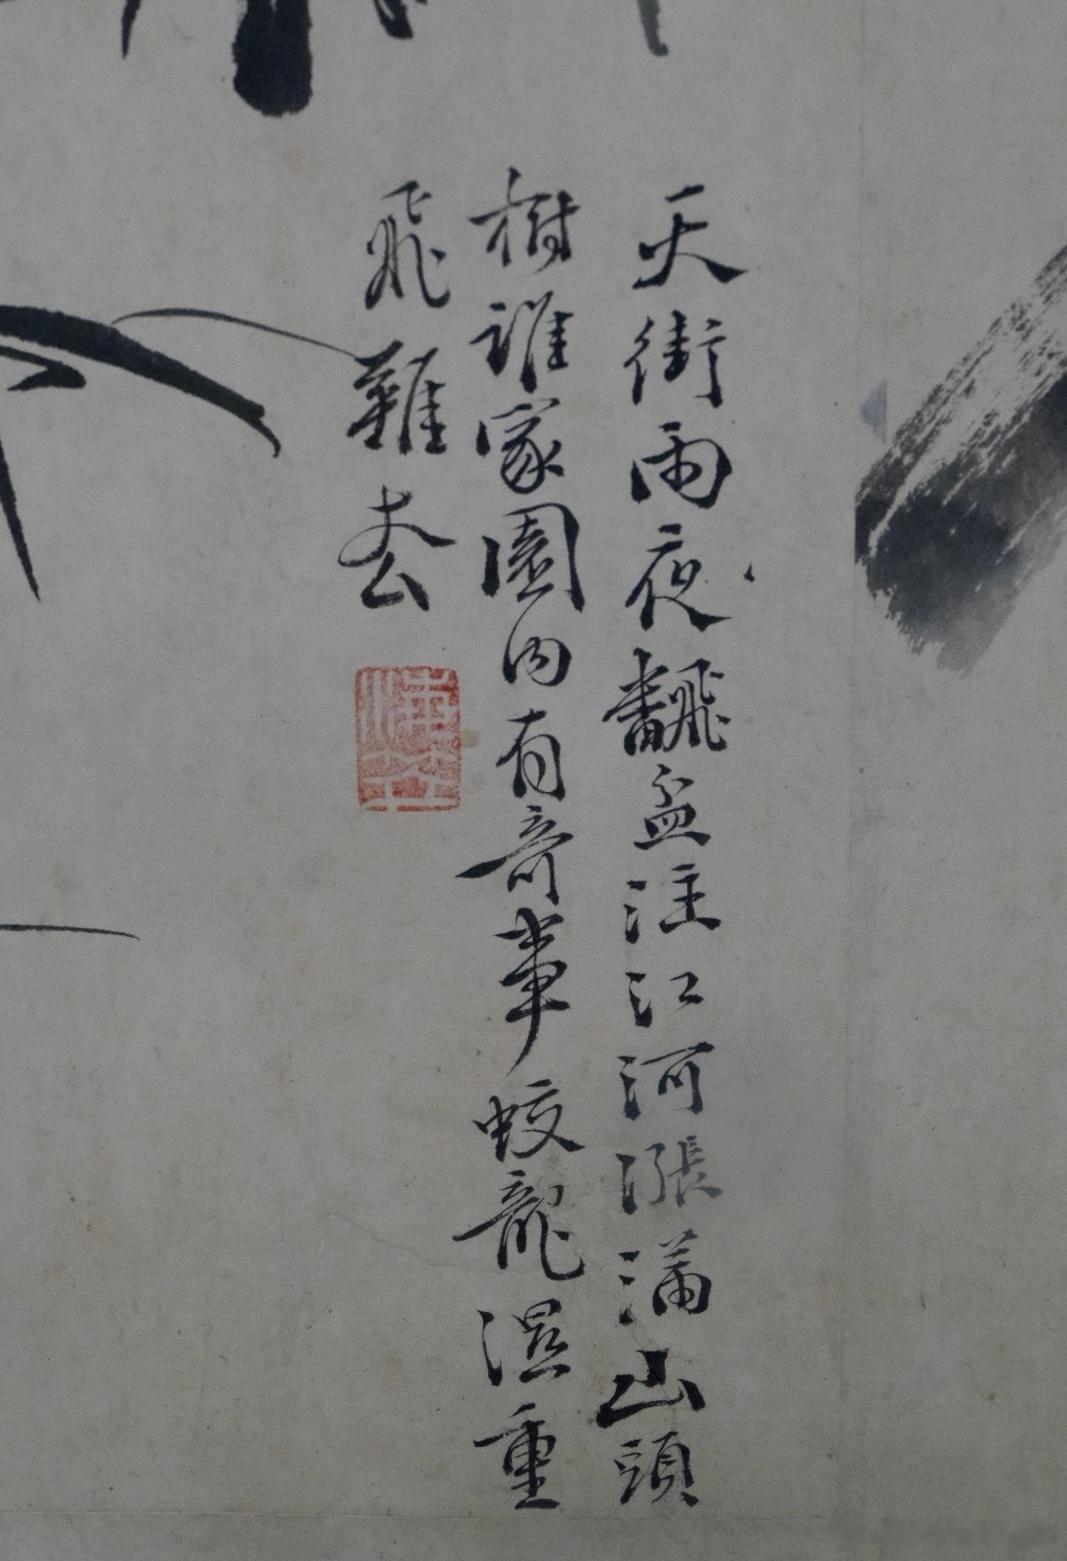 天街雨夜飜盆注江河漲滿山頭
樹誰家園內有奇事蛟龍濕重
飛難去